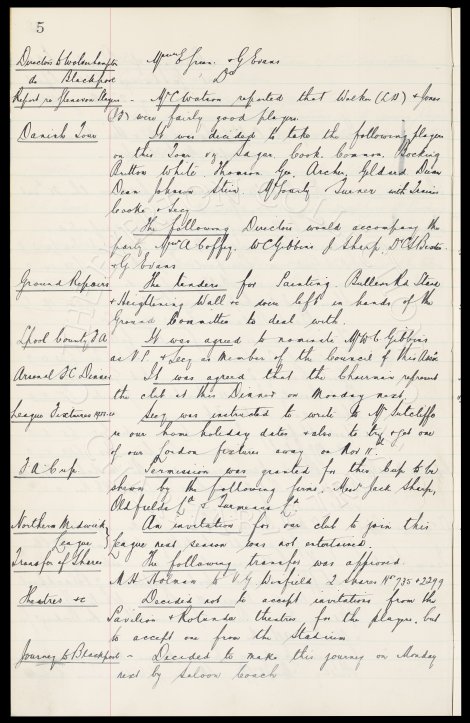 5
Directors to Wolverhampton Messrs E Green & G Evans
do Blackpool Do
Report re Glenavon Players - Mr C Watson reported that Walker (L.B) & Jones
were fairly good players.
Danish Tour It was decided to take the following players
on this Tour viz Sagar, Cook, Gannon, Bocking
Britton White. Thomson Geo. Archer, Geldard Dunn
Dean Johnson Stein. McGourty Turner with Trainer
Cooke & Secy
The following Directors would accompany the
party, Messrs A Coffey, W C Gibbins J Sharp, Dr C S Baxter
& G Evans
Ground Repairs The tenders for Painting Bullens Rd Stand
& Heightening Wall & were left in hands of the
Ground Committee to deal with.
Lpool County F A It was agreed to nominate Mr W C Gibbins
as V P. & Secy as Member of the Council of this Assn
Arsenal F C Dinner It was agreed that the Chairman represent
the club at this Dinner on Monday next
League Fixtures Secy was instructed to write to Mr Sutcliffe
re our home holiday dates & also to try & get one
of our London fixtures away on Nov 11th
F A Cup. Permission was granted for this Cup to be
shewn by the following firms, Messrs Jack Sharp,
Oldfields Ld & Ld
Northern Midweek An invitation for our club to join this
League League next season was not entertained.
Transfer of Shares The following transfer was approved.
M. H. Holman to V. G 2 Shares Nos 735 & 2299
Theatres &c Decided not to accept invitations from the
Pavilion & Rotunda theatres for the players, but
to accept one from the Stadium
Journey to Blackpool - Decided to make this journey on Monday
next by saloon coach